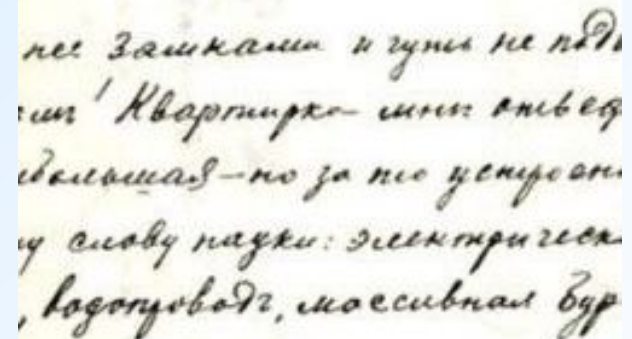 нее замками и чуть не поды
емъ! Квартирка мнѣ отвед
ебольшая – но за то устроен
му слову науки: электрическ
, водопроводъ, массивная бур